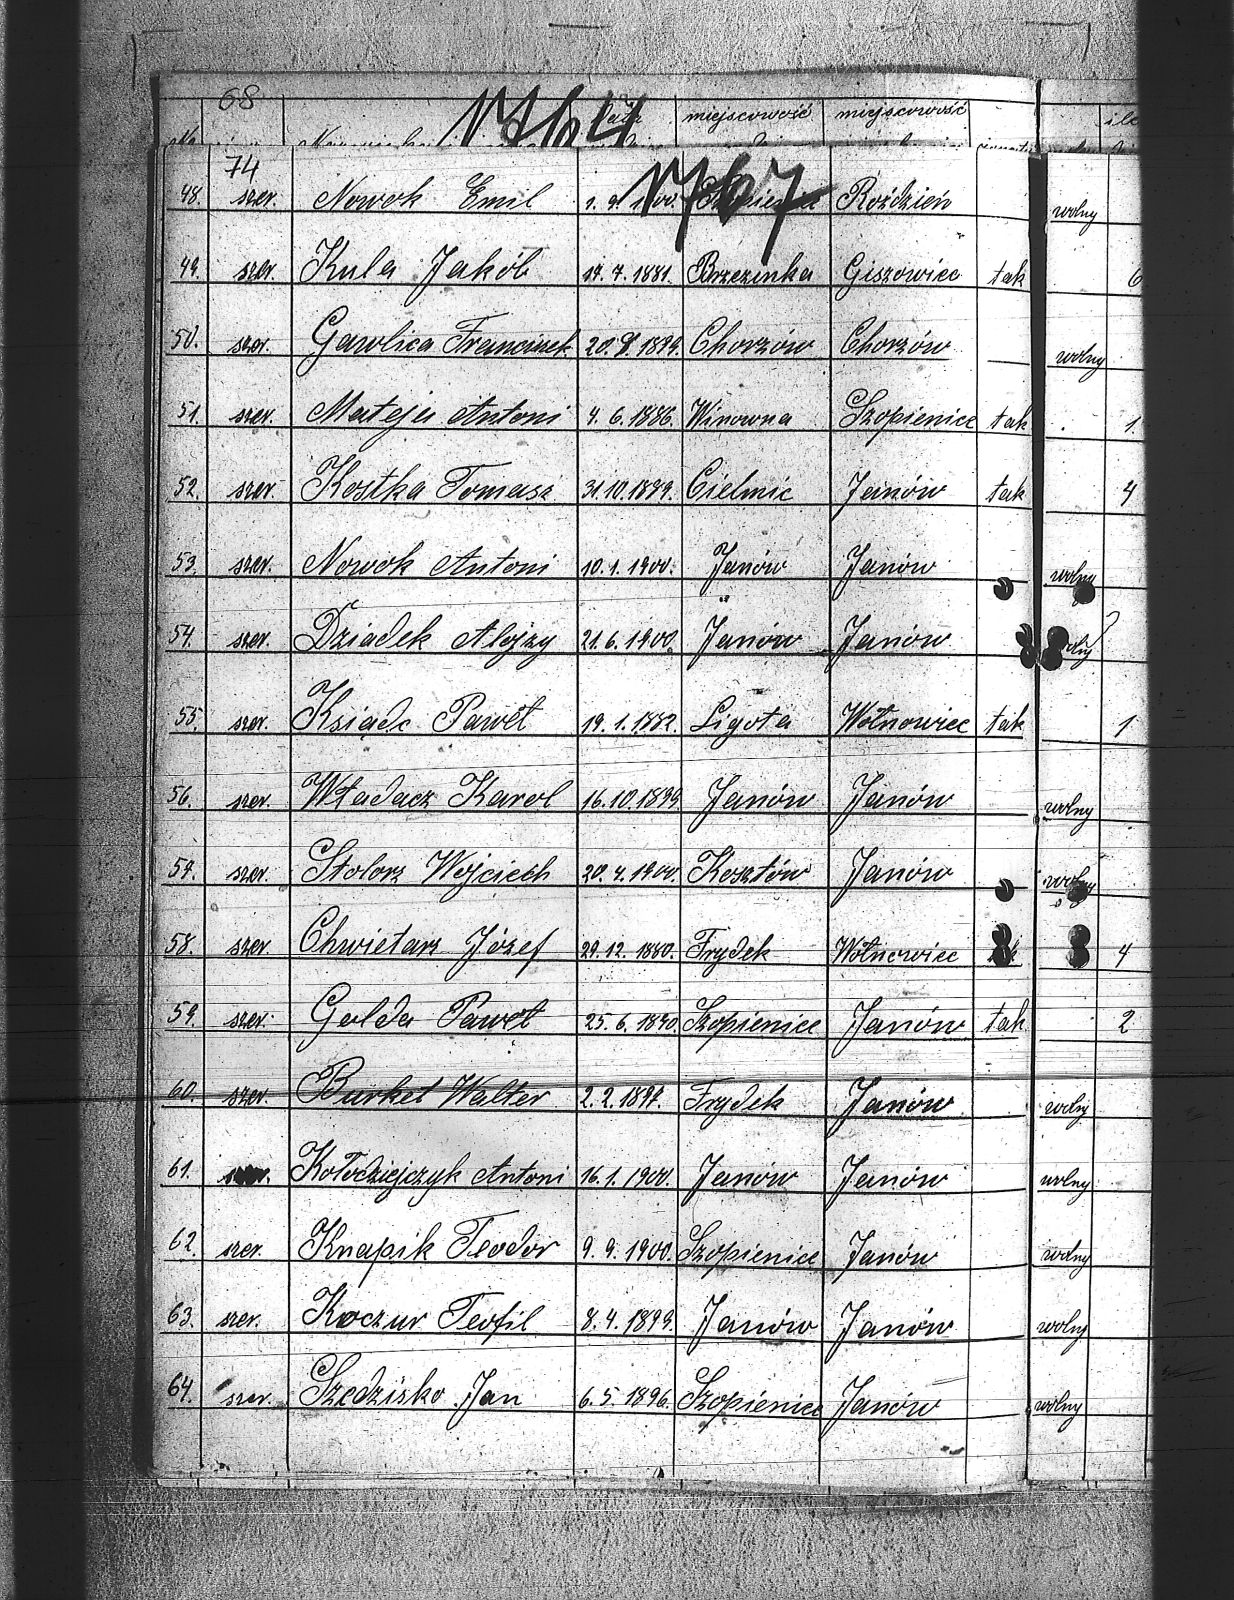 68
1764
miejscowość miejscowość
74
1767
48. szer. Nowok Emil 1. 9. 1900. Roździeń wolny
49. szer. Kula Jakób 17. 7. 1881. Brzezinka Giszowiec tak 6
50. szer. Gawlica Franciszek 20. 9. 1899. Chorzów Chorzów wolny
51. szer. Mateja Antoni 4. 6. 1886. Winowna Szopienice tak 1
52. szer. Kostka Tomasz 31. 10. 1889. Cielmic Janów tak 4
53. szer. Nowok Antoni 10. 1. 1900. Janów Janów wolny
54. szer. Dziadek Alojzy 21. 6. 1900. Janów Janów wolny
55. szer. Ksiądc Paweł 19. 1. 1882. Ligota Wełnowiec tak 1
56. szer. Władacz Karol 16. 10. 1899 Janów Janów wolny
57. szer. Stolorz Wojciech 20. 4. 1900. Kosztów Janów wolny
58. szer. Chwietarz Józef 29. 12. 1880. Frydek Wełnowiec 4
59. szer. Golda Paweł 25. 6. 1890. Szopienice Janów tak 2
60. szer. Burket Walter 2. 2. 1897. Frydek Janów wolny
61. Kołodziejczyk Antoni 16. 1. 1900. Janów Janów wolny
62. szer. Knapik Teodor 9. 9. 1900. Szopienice Janów wolny
63. szer. Koczur Teofil 8. 4. 1899. Janów Janów wolny
64. szer. Szedzisko Jan 6. 5. 1896. Szopienice Janów wolny